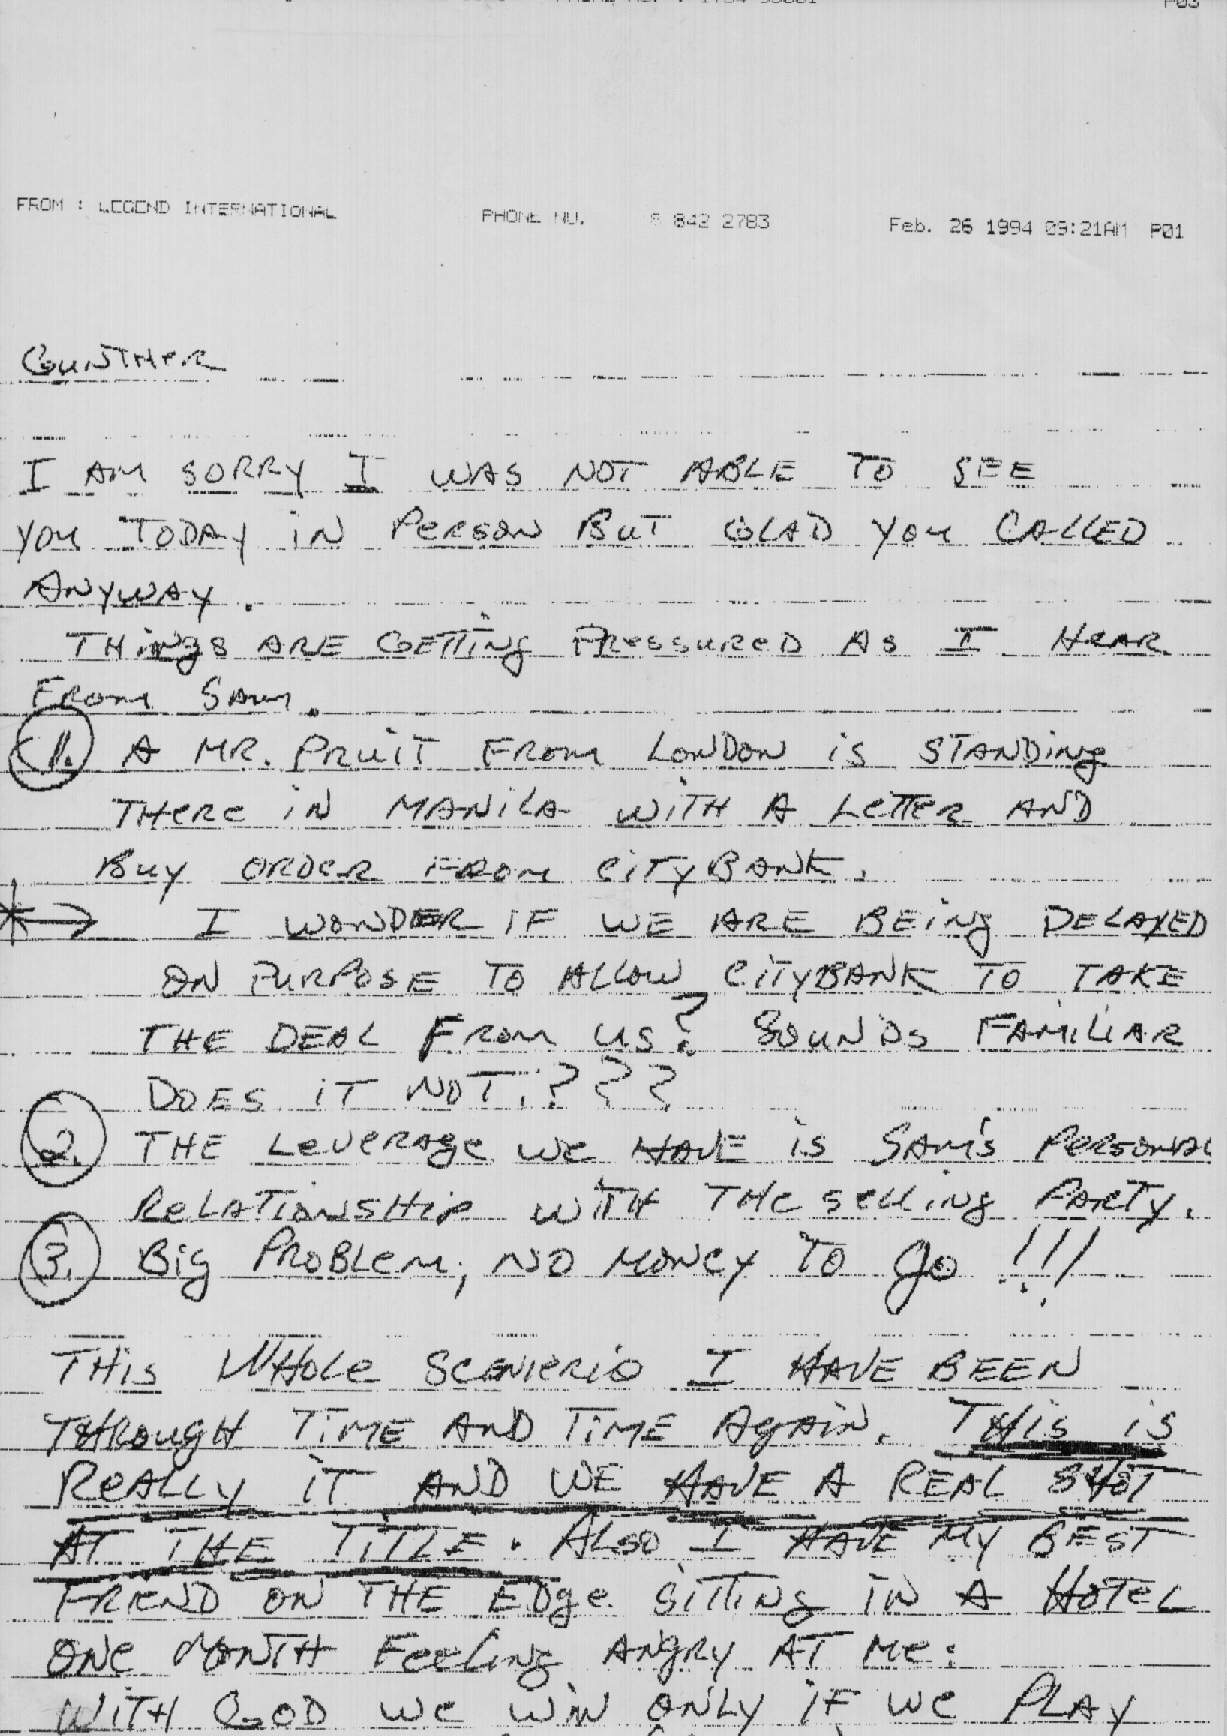 P03
FROM : LEGEND INTERNATIONAL PHONE NO. 8 842 2783 Feb. 26 1994 09:21AM P01
GUNTHER
I AM SORRY I WAS NOT ABLE TO SEE
YOU TODAY IN PERSON BUT GLAD YOU CALLED
ANYWAY.
THINGS ARE GETTING PRESSURED AS I HEAR
FROM SAM.
1. A MR. PRUIT FROM LONDON IS STANDING
THERE IN MANILA WITH A LETTER AND
BUY ORDER FROM CITYBANK.
* → I WONDER IF WE ARE BEING DELAYED
ON PURPOSE TO ALLOW CITYBANK TO TAKE
THE DEAL FROM US? SOUNDS FAMILIAR
DOES IT NOT.???
2. THE LEVERAGE WE HAVE IS SAM'S PERSONAL
RELATIONSHIP WITH THE SELLING PARTY.
3. BIG PROBLEM, NO MONEY TO GO!!!
THIS WHOLE SCENIERIO I HAVE BEEN
THROUGH TIME AND TIME AGAIN. THIS IS
REALLY IT AND WE HAVE A REAL SHOT
AT THE TITLE. ALSO I HAVE MY BEST
FRIEND ON THE EDGE SITTING IN A HOTEL
ONE MONTH FEELING ANGRY AT ME:
WITH GOD WE WIN ONLY IF WE PLAY